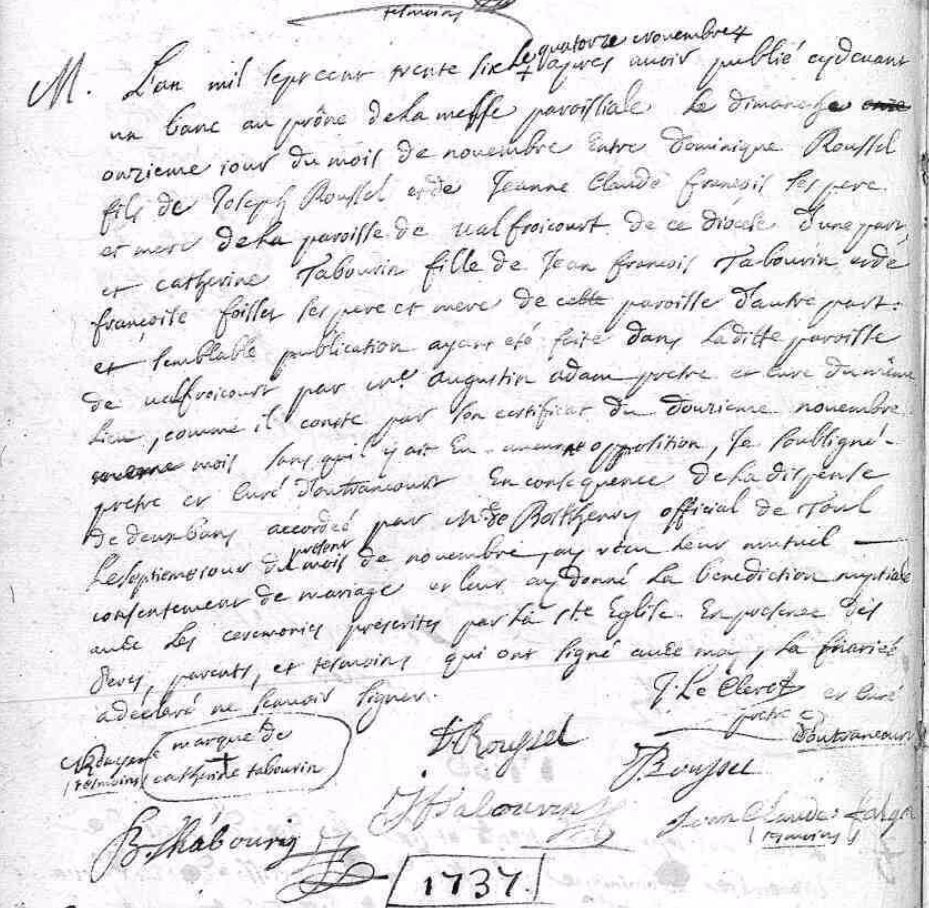 tesmoins
le quatorze novembre
M. L'an mil sept cent trente six apres avoir publié cydevant
un banc au prône de la messe paroissiale le dimanche onze
onzieme iour du mois de novembre Entre Dominique Roussel
fils de Joseph Roussel et de Jeanne Claude François ses pere
et mere de la paroisse de valfroicourt de ce diocèse d'une part,
et catherine Tabourin fille de Jean françois Tabourin et de
françoise foillet ses pere et mere de cette paroisse d'autre part:
et semblable publication ayant été faite dans laditte paroisse
de valfroicourt par mre augustin adam pretre et curé du même
lieu, comme il conste par son certificat du douzieme novembre
mois sans qu'il y ait Eu opposition, Je soubligné
pretre et Curé d'outrancourt En consequence de la dispense
de deux bans accordeé par Mr de official de Toul
le septieme iour du present mois de novembre, ay recu leur mutuel
consentement de mariage et leur ay donné la benediction nuptiale
avec les ceremonies prescrites par la Ste Eglise. En presence des
peres, parents, et tesmoins qui ont signé avec moy, la mariée
a declaré ne scavoir signer.
J. Le Clerc pretre et curé
d'outrancourt
marque de
catherine tabourin
tesmoins
D Roussel
J Roussel
JF Tabourin
Jean Claude
tesmoins
B. Thabourin
1737.